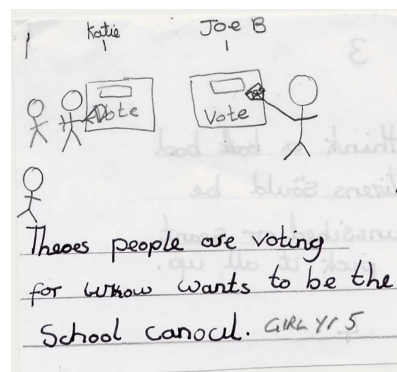 Katie Joe B
Vote Vote
Theoes people are voting
for whow wants to be the
School canocul. GIRL Yr 5